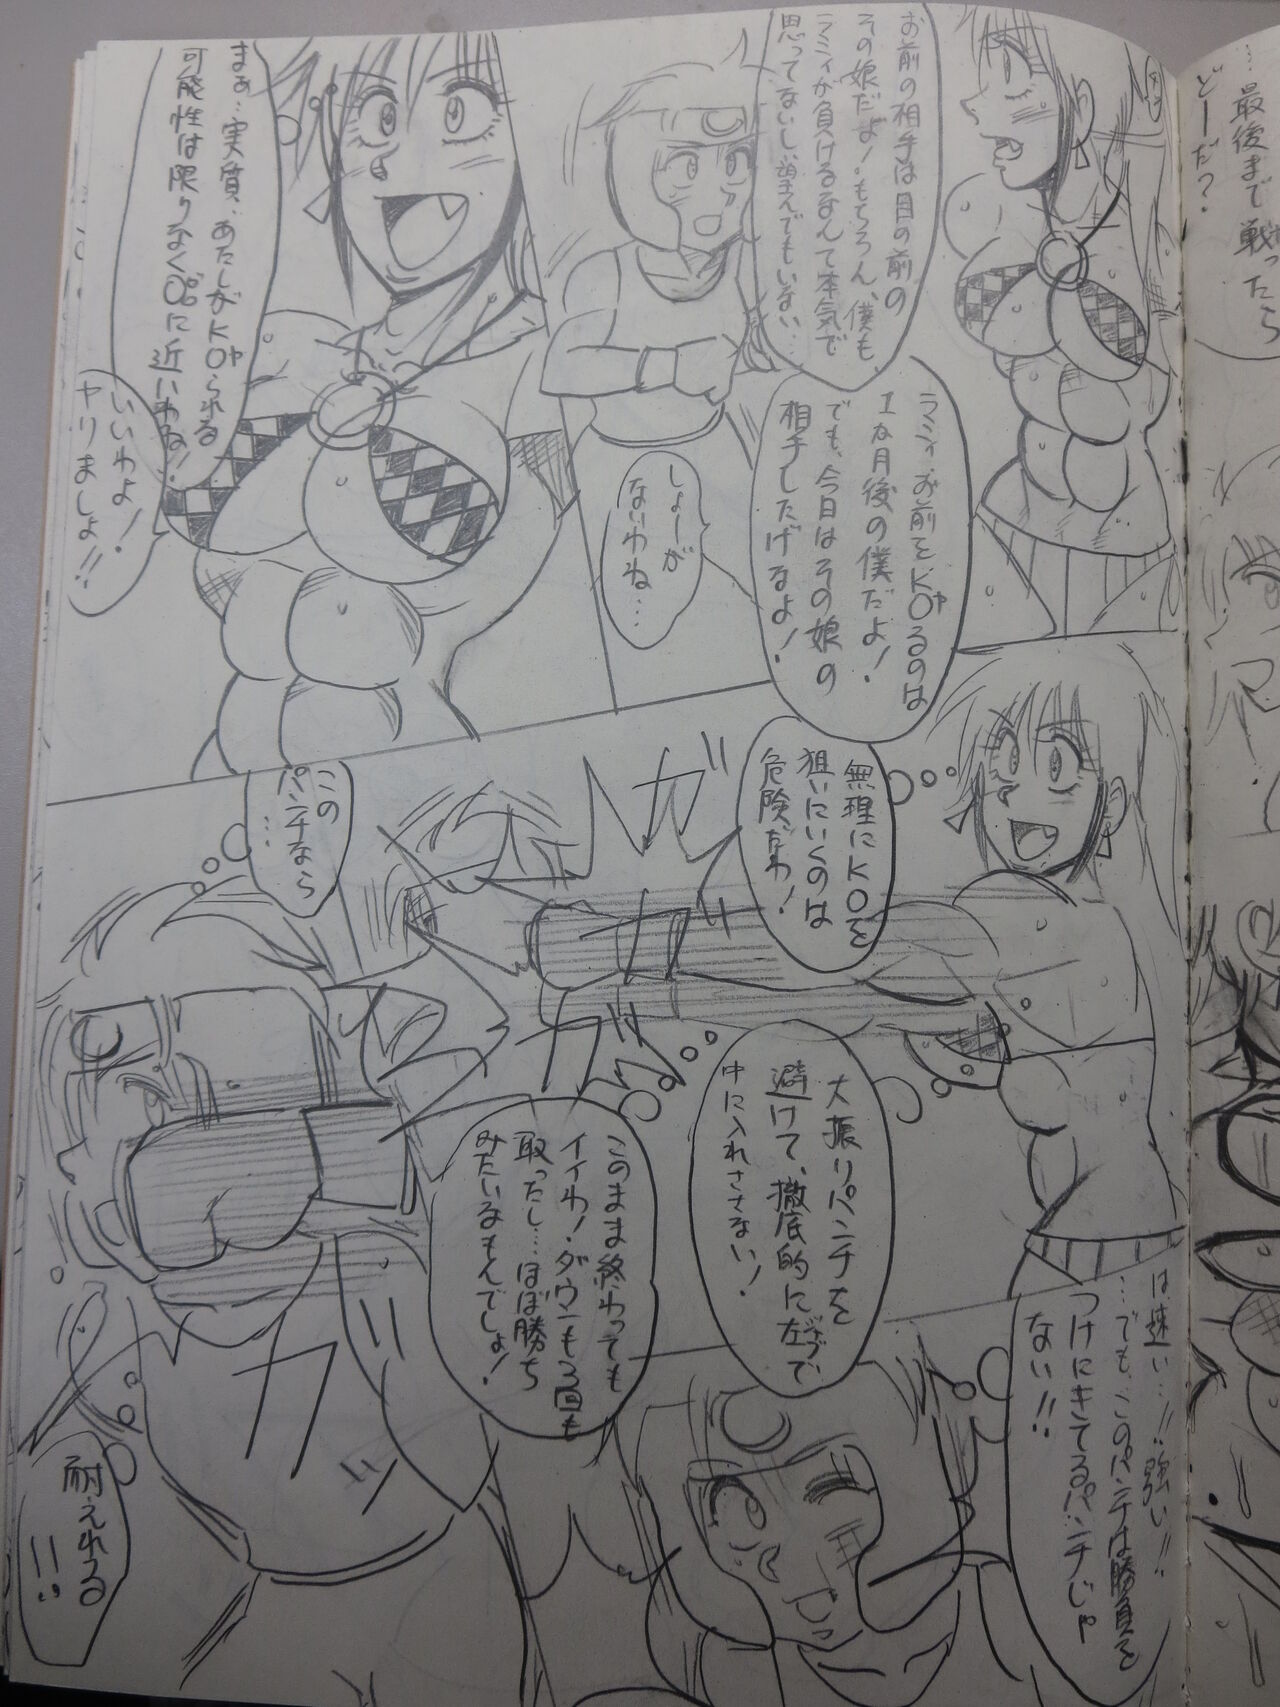 お前の相手は目の前の
その娘だよ!もちろん、僕も
ラミィが負けるなんて本気で
思ってないし、望んでもいない…
ラミィ、お前をKOるのは
ヤ
1カ月後の僕だよ!
でも、今日はその娘の
相手したげるよ!
しょーが
ないわね…
まぁ…実質、あたしがKOられる
ヤ
可能性は限りなく0%に近いわね!
いいわよ!
ヤりましょ!!
無理にKOを
狙いにいくのは
危険だわ!
ガ
ガ
大振りパンチを
避けて、徹底的に左で
ジャブ
中に入れさせない!
このまま終わっても
イイわ!ダウンも3回も
取ったし…ほぼ勝ち
みたいなもんでしょ!
この
パンチなら
…
ガ
ッ
は速い…!!強い!!
…でも、このパンチは勝負を
つけにきてるパンチじゃ
ない!!
耐えれる
!!
…最後まで
戦ったら
どーだ?